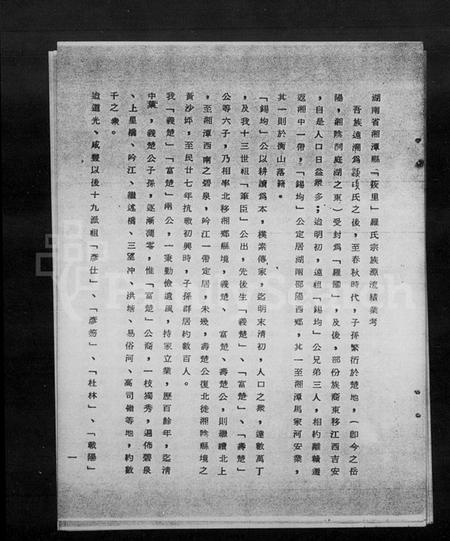 湖南省湘潭縣「筱里」羅氏宗族源流績業考
吾族遠溯為祝氏之後，至春秋時代，子孫繁衍於楚地，（即今之岳
陽，湘陰洞庭湖之東，受封為「羅國」，及後，部份族裔東移江西吉安
，自是人口日益眾多；迨明初，遠祖「錫均」公兄弟三人，相約離贛遷
返湘中一帶，「錫均」公定居湖南邵陽西鄉，其一至湘潭馬家河安業，
其一則於衡山落籍。
「錫均」公以耕讀為本，樸素傳家，迄明末清初，人口之眾，達數萬丁
，及我十三世祖「筆臣」公出，先後生「義楚」、「富楚」、「壽楚」
公等六子，乃相率北移湘鄉縣境，義楚、富楚、壽楚公，則繼續北上
，至湘潭西南之碧泉，吟江一帶定居，未幾，壽楚公復北徙湘陰縣境之
黃沙坪，至民廿七年抗戰初興時，子孫群居約數百人。
我「義楚」「富楚」兩公，一秉勤儉遺風，持家立業，歷百餘年，迄清
中葉，義楚公子孫，逐漸凋零，惟「富楚」公裔，一枝獨秀，遍佈碧泉
、上里橋、吟江、繼述橋、三望冲、洪塘、易俗河、高司嶺等地，約數
千之眾。
迨道光、咸豐以後十九派祖「彥仕」、「彥笏」、「杜林」、「載陽」
一